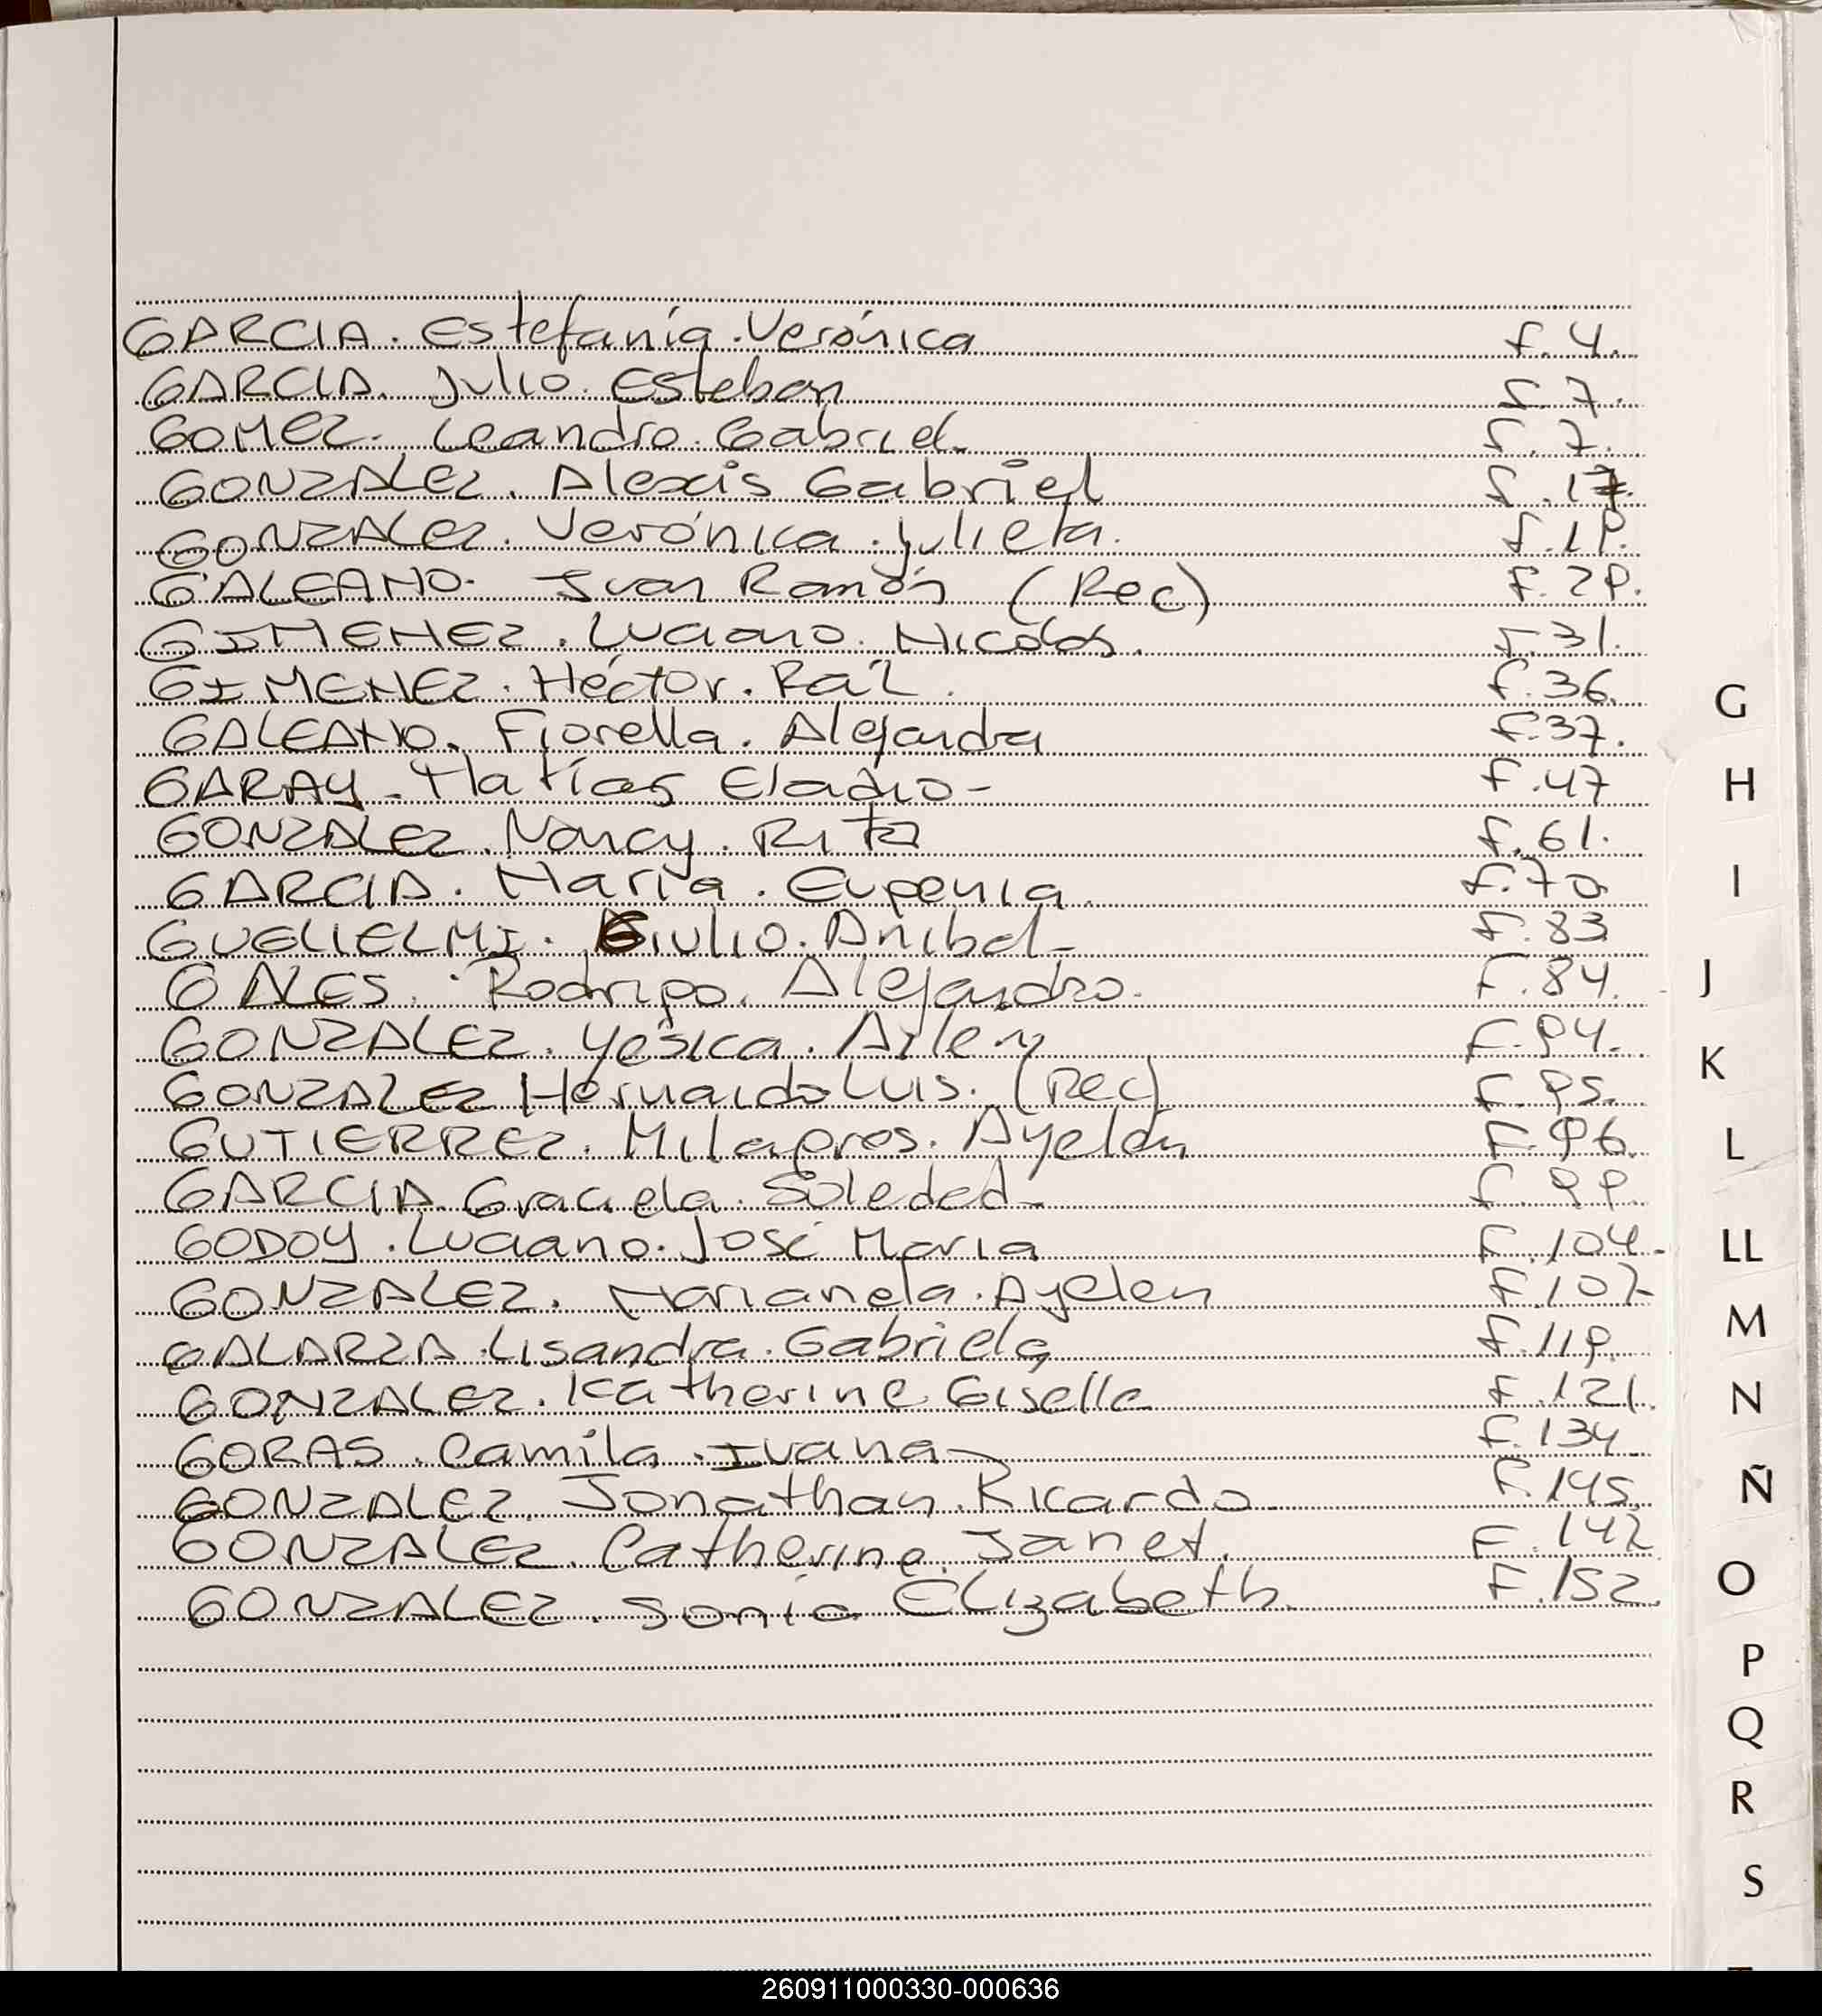 GARCIA. Estefanía. Verónica f. 4.
GARCIA. Julio. Esteban f. 7.
GOMEZ. Leandro. Gabriel. f. 7.
GONZALEZ. Alexis Gabriel f. 17.
GONZALEZ. Verónica. Julieta. f. 19.
GALEANO. Juan Ramón (Rec) f. 29.
GIMENEZ. Luciano. Nicolás. f. 31.
GIMENEZ. Héctor. Raúl. f. 36.
GALEANO. Fiorella. Alejandra f. 37.
GARAY. Matías Eladio- f. 47
GONZALEZ. Nancy. Rita f. 61.
GARCIA. María. Eugenia. f. 70
GUGLIELMI. Giulio. Anibal- F. 83
Rodrigo. Alejandro. F. 84.
GONZALEZ. Yésica. Aylen F. 94.
GONZALEZ Hernando Luis. (Rec) F. 95.
GUTIERREZ. Milagros. Ayelén F. 96.
GARCIA Graciela. Soledad- f. 99.
GODOY. Luciano. José María F. 104-
GONZALEZ. Marianela. Ayelen f. 107-
GALARZA. Lisandra. Gabriela f. 119.
GONZALEZ. Katherine Giselle f. 121.
GORAS. Camila. Ivana f. 134
GONZALEZ. Jonathan. Ricardo f. 145.
GONZALEZ. Catherine. Janet. F. 142
GONZALEZ. Sonia Elizabeth. F. 152.
G
H
I
J
K
L
LL
M
N
Ñ
O
P
Q
R
S
260911000330-000636